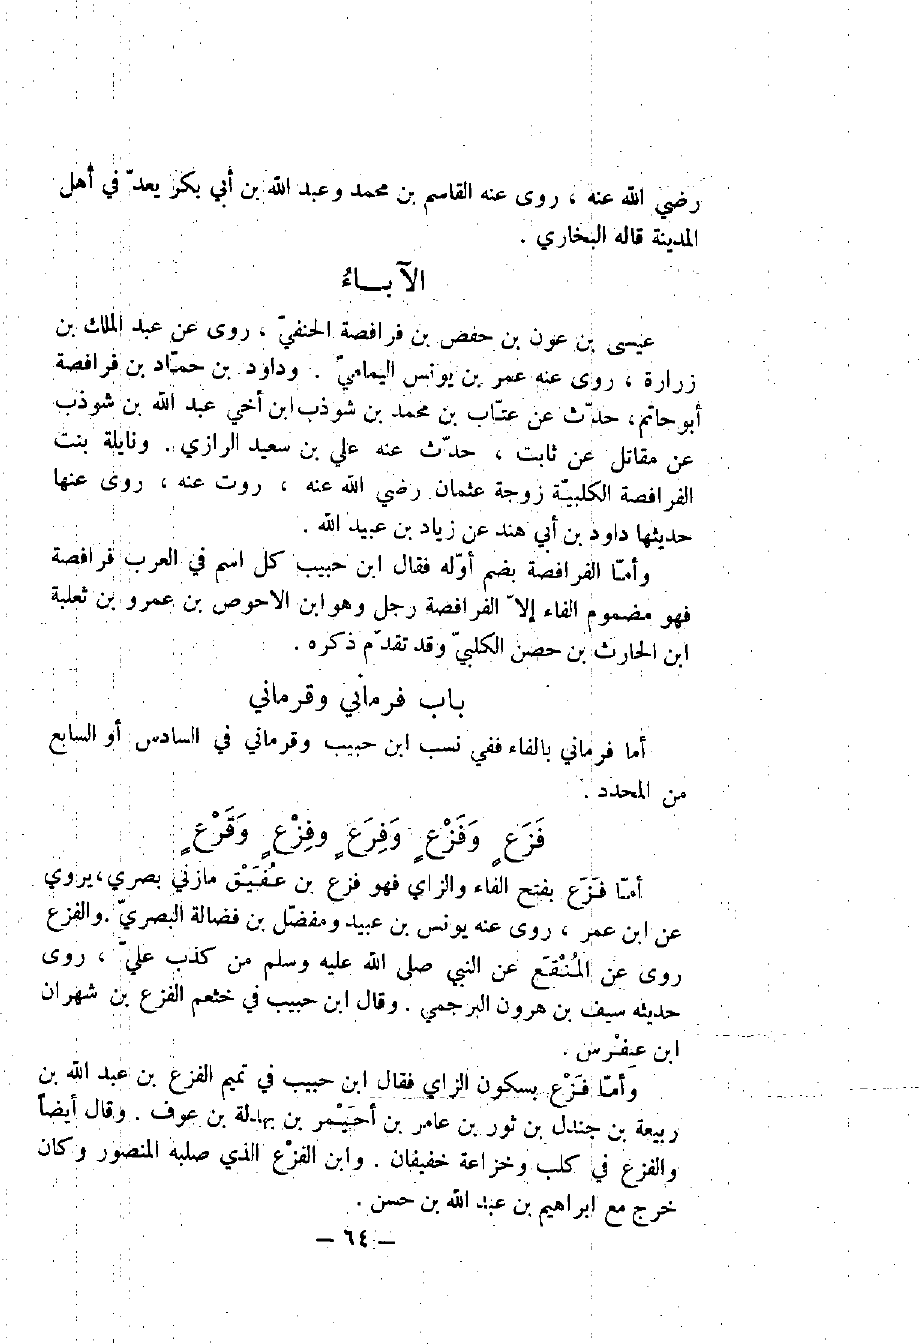 رضي الله عنه ، روى عنه القاسم بن محمد وعبد الله بن أبي بكر يعدّ في أهل
المدينة قاله البخاري .
الآبــاءُ
عيسى بن عون بن حفص بن فرافصة الحنفيّ ، روى عن عبد الملك بن
زرارة ، روى عنه عمر بن يونس اليماميّ . وداود بن حمّاد بن فرافصة
أبو حاتم، حدّث عن عتّاب بن محمد بن شوذب ابن أخي عبد الله بن شوذب
عن مقاتل عن ثابت ، حدّث عنه علي بن سعيد الرازي . ونايلة بنت
الفرافصة الكلبيّة زوجة عثمان رضي الله عنه ، روت عنه ، روى عنها
حديثها داود بن أبي هند عن زياد بن عبيد الله .
وأمّا الفرافصة بضم أوّله فقال ابن حبيب كل اسم في العرب فرافصة
فهو مضموم الفاء إلاّ الفرافصة رجل وهو ابن الاحوص بن عمرو بن ثعلبة
ابن الحارث بن حصن الكلبيّ وقد تقدّم ذكره .
باب فرماني وقرماني
أما فرماني بالفاء ففي نسب ابن حبيب وقرماني في السادس أو السابع
من المحدد .
فَزَعٍ وَفَزْعٍ وَفِرَعٍ وفِزْعٍ وَقَرْعٍ
أمّا فَزَع بفتح الفاء والزاي فهو فزع بن عُفَيْق مازني بصري، يروي
عن ابن عمر ، روى عنه يونس بن عبيد ومفضّل بن فضالة البصريّ . والفزع
روى عن المُنْقَع عن النبي صلى الله عليه وسلم من كذب عليّ ، روى
حديثه سيف بن هرون البرجمي . وقال ابن حبيب في خثعم الفزع بن شهران
ابن عِفْرس .
وأمّا فَزْع بسكون الزاي فقال ابن حبيب في تميم الفزع بن عبد الله بن
ربيعة بن جندل بن ثور بن عامر بن أحَيْمر بن بهدلة بن عوف . وقال أيضاً
والفزع في كلب وخزاعة خفيفان . وابن الفزْع الذي صلبه المنصور وكان
خرج مع ابراهيم بن عبد الله بن حسن .
– ٦٤ –